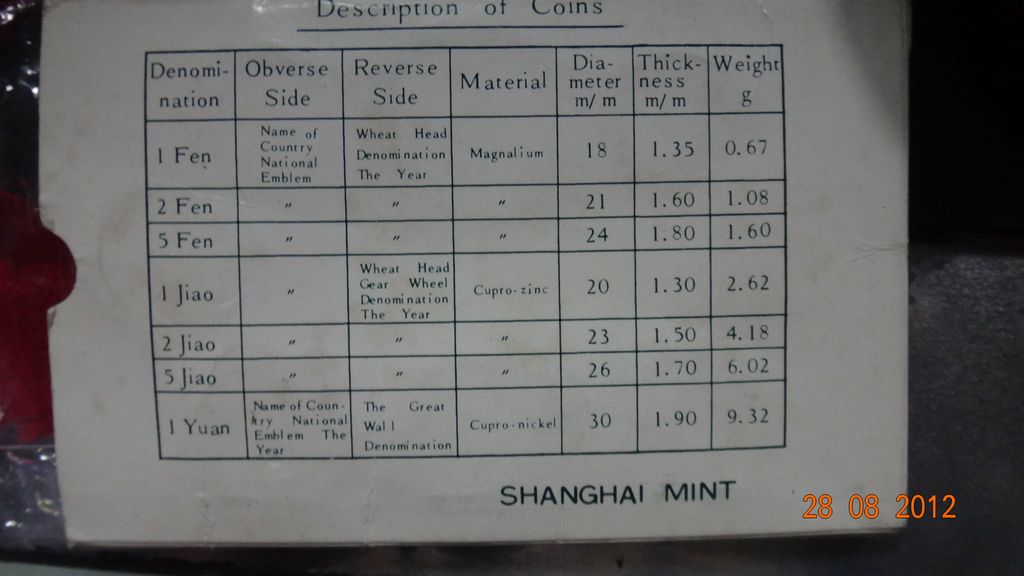 Description of Coins
Denomi-
nation
Obverse
Side
Reverse
Side
Material
Dia-
meter
m/m
Thick-
ness
m/m
Weight
g
1 Fen
Name of
Country
National
Emblem
Wheat Head
Denomination
The Year
Magnalium
18
1.35
0.67
2 Fen
"
"
"
21
1.60
1.08
5 Fen
"
"
"
24
1.80
1.60
1 Jiao
"
Wheat Head
Gear Wheel
Denomination
The Year
Cupro-zinc
20
1.30
2.62
2 Jiao
"
"
"
23
1.50
4.18
5 Jiao
"
"
"
26
1.70
6.02
1 Yuan
Name of Coun-
try National
Emblem The
Year
The Great
Wall
Denomination
Cupro-nickel
30
1.90
9.32
SHANGHAI MINT
28 08 2012